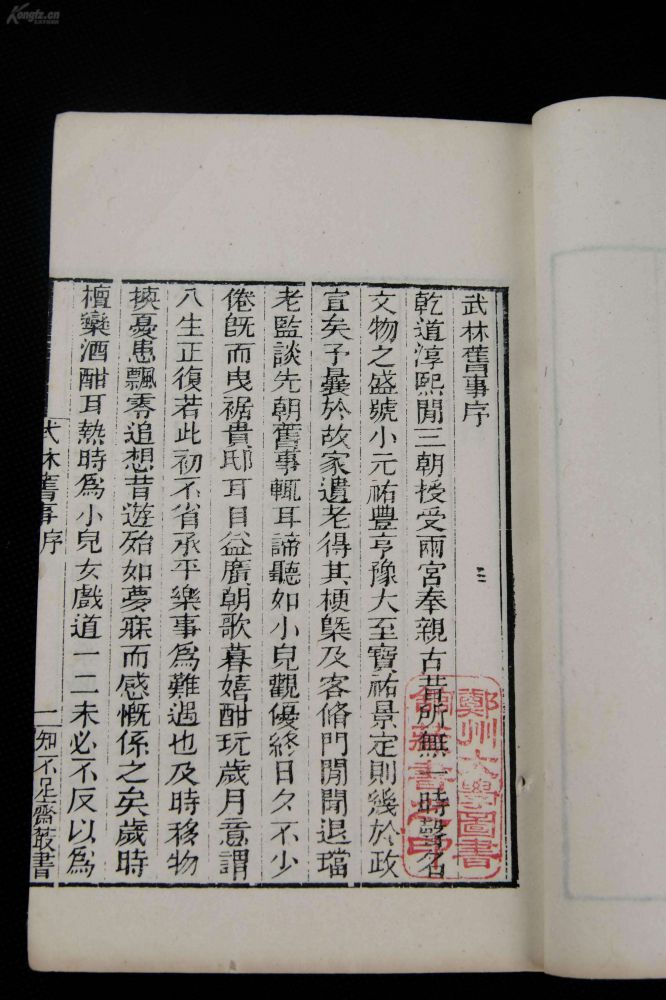 武林舊事序
乾道淳熙閒三朝授受兩宮奉親古昔所無一時聲名
文物之盛號小元祐豐亨豫大至寶祐景定則幾於政
宣矣予曩於故家遺老得其梗槩及客脩門閒聞退璫
老監談先朝舊事輒耳諦聽如小兒觀優終日夕不少
倦旣而曳裾貴邸耳目益廣朝歌暮嬉酣玩歲月意謂
人生正復若此初不省承平樂事爲難遇也及時移物
換憂患飄零追想昔遊殆如夢寐而感慨係之矣歲時
檀欒酒酣耳熱時爲小兒女戲道一二未必不反以爲
武林舊事序
一
知不足齋叢書
鄭州大學圖書
館藏書之印
Kongfz.cn